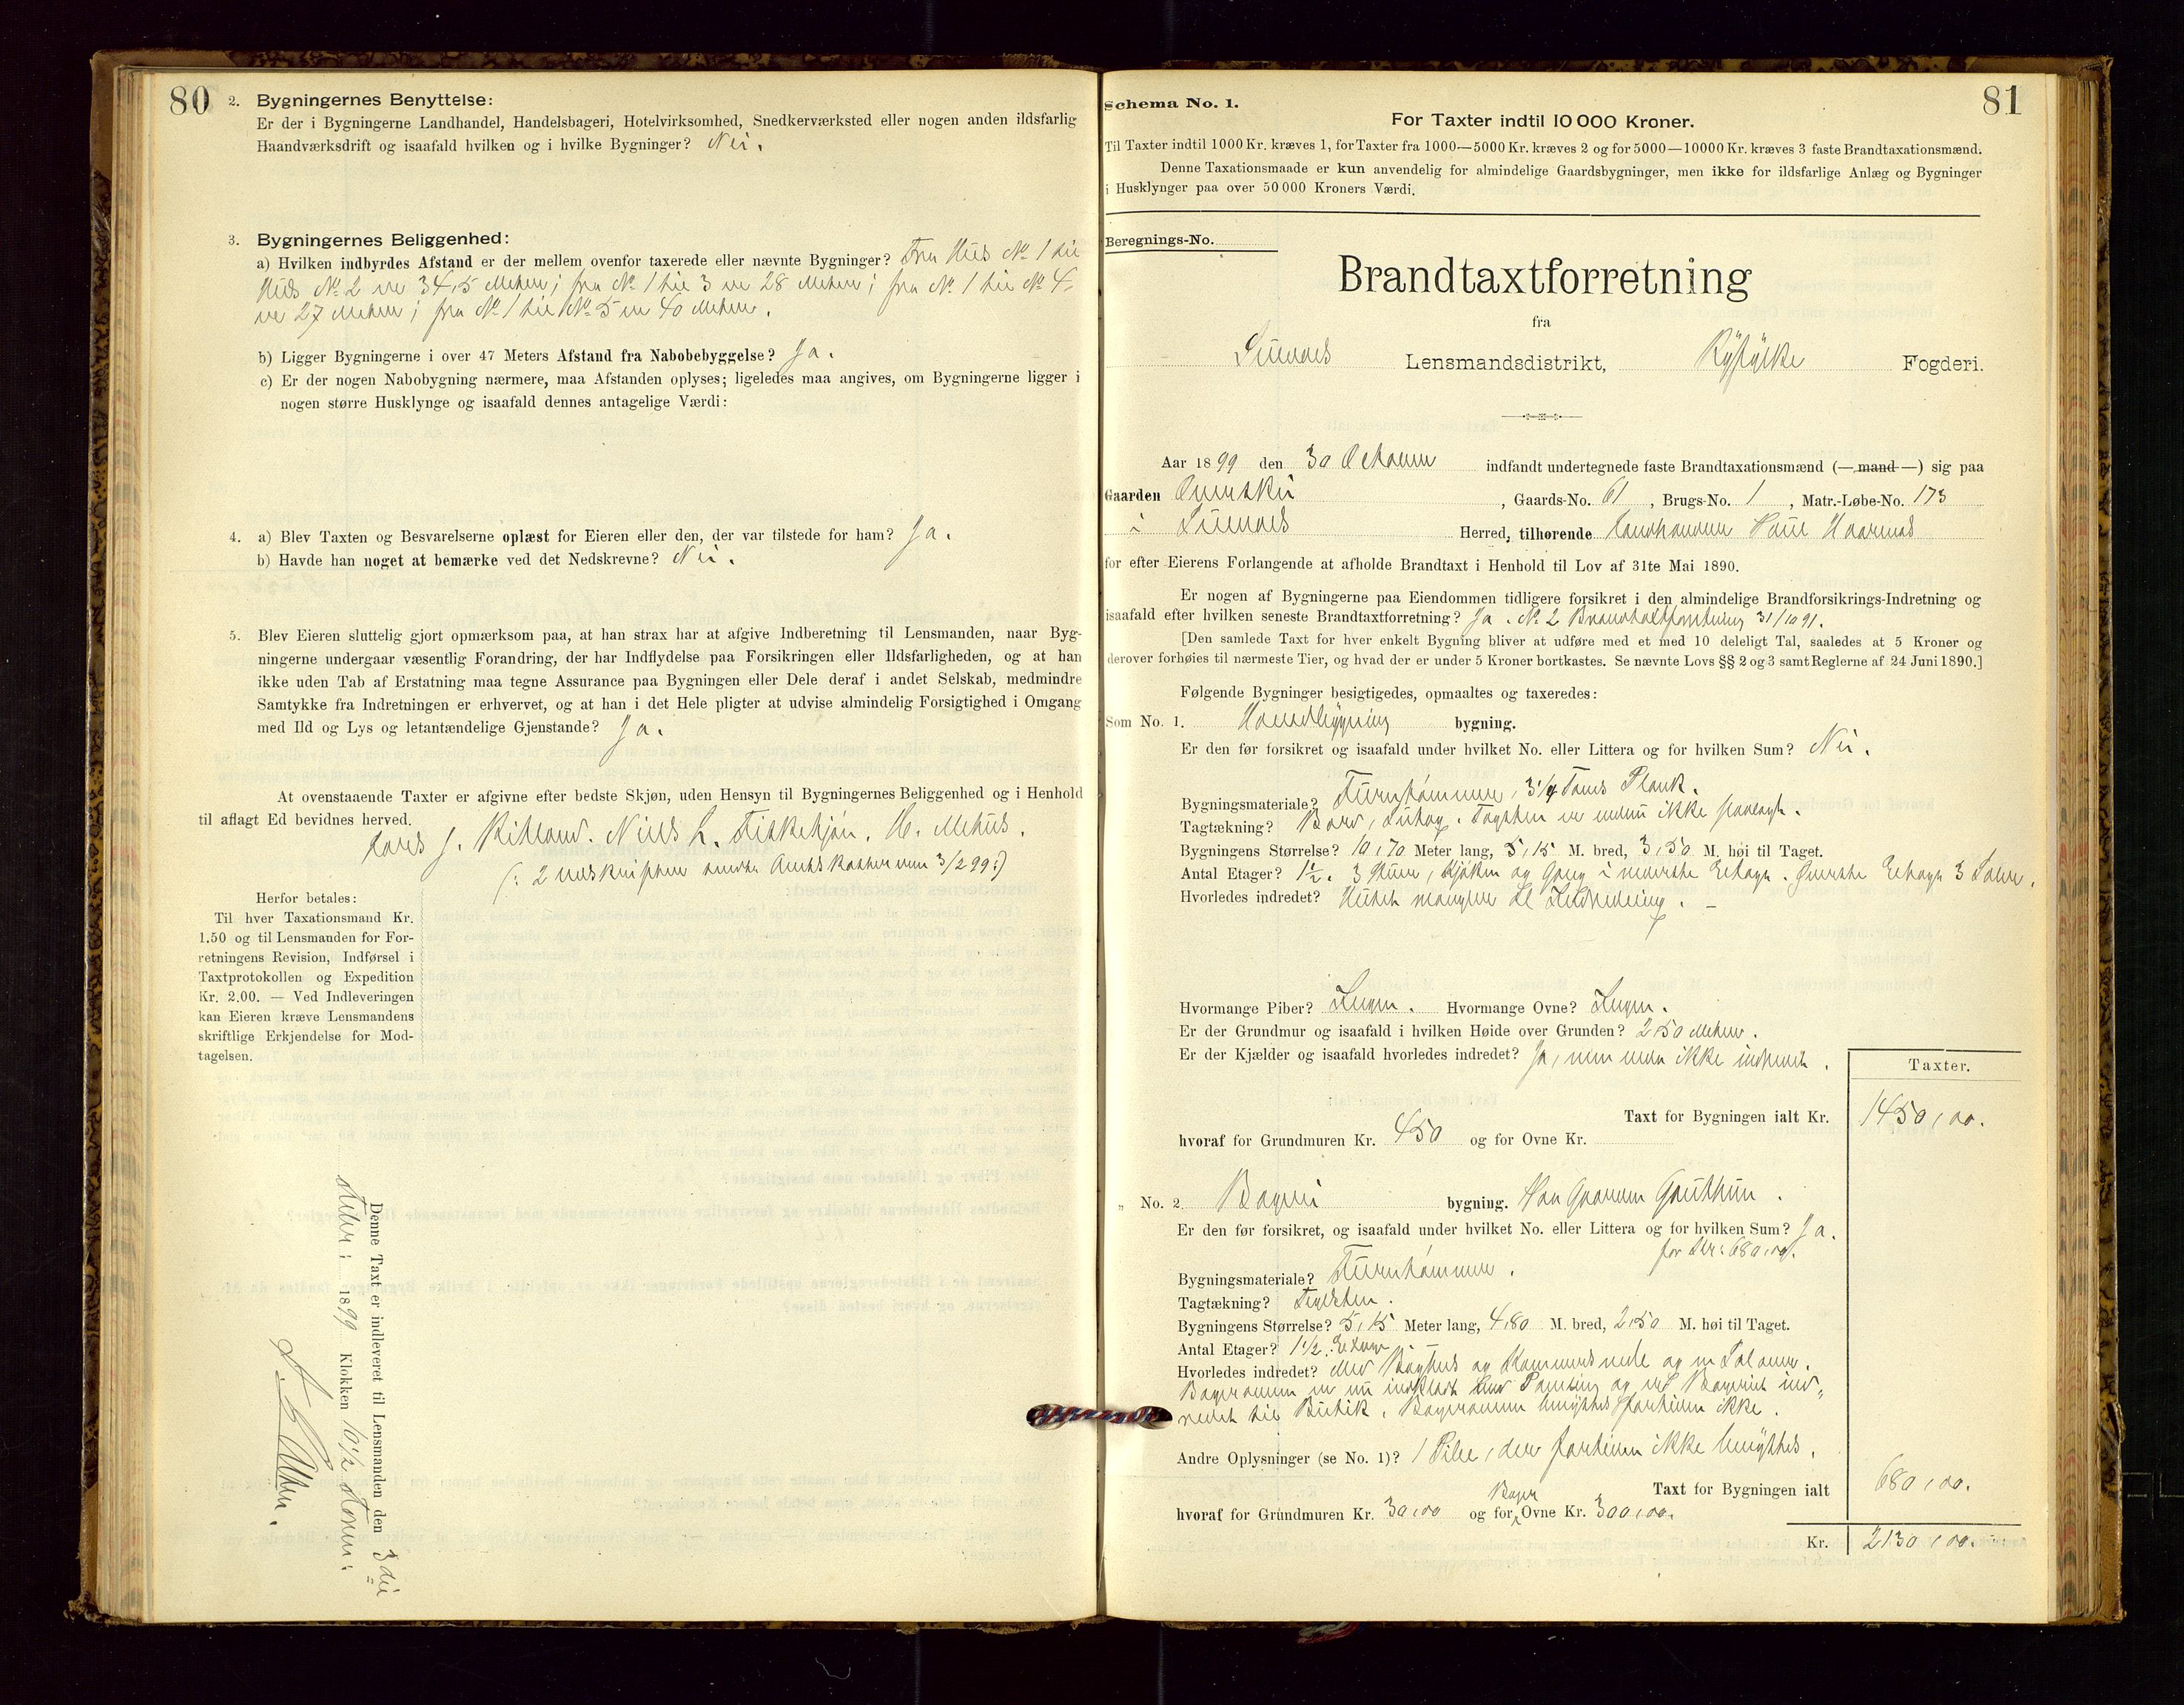 80
2. Bygningernes Benyttelse:
Er der i Bygningerne Landhandel, Handelsbageri, Hotelvirksomhed, Snedkerværksted eller nogen anden ildsfarlig
Haandværksdrift og isaafald hvilken og i hvilke Bygninger? Nei.
3. Bygningernes Beliggenhed:
a) Hvilken indbyrdes Afstand er der mellem ovenfor taxerede eller nævnte Bygninger? Fra Hus No 1 til
Hus No 2 er 34,5 Meter; fra No 1 til 3 er 28 Meter; fra No 1 til No 4
er 27 Meter; fra No 1 til No 5 er 40 Meter.
b) Ligger Bygningerne i over 47 Meters Afstand fra Nabobebyggelse? Ja.
c) Er der nogen Nabobygning nærmere, maa Afstanden oplyses; ligeledes maa angives, om Bygningerne ligger i
nogen større Husklynge og isaafald dennes antagelige Værdi:
4. a) Blev Taxten og Besvarelserne oplæst for Eieren eller den, der var tilstede for ham? Ja.
b) Havde han noget at bemærke ved det Nedskrevne? Nei.
5. Blev Eieren sluttelig gjort opmærksom paa, at han strax har at afgive Indberetning til Lensmanden, naar Byg-
ningerne undergaar væsentlig Forandring, der har Indflydelse paa Forsikringen eller Ildsfarligheden, og at han
ikke uden Tab af Erstatning maa tegne Assurance paa Bygningen eller Dele deraf i andet Selskab, medmindre
Samtykke fra Indretningen er erhvervet, og at han i det Hele pligter at udvise almindelig Forsigtighed i Omgang
med Ild og Lys og letantændelige Gjenstande? Ja.
At ovenstaaende Taxter er afgivne efter bedste Skjøn, uden Hensyn til Bygningernes Beliggenhed og i Henhold
til aflagt Ed bevidnes herved.
Lars J. Kitland. Niels L. Fiskekjøn. H. Mehus.
(: 2 Udskrifter sendte Amtskasserren 3/2 99:)
Herfor betales:
Til hver Taxationsmand Kr.
1.50 og til Lensmanden for For-
retningens Revision, Indførsel i
Taxtprotokollen og Expedition
Kr. 2.00. — Ved Indleveringen
kan Eieren kræve Lensmandens
skriftlige Erkjendelse for Mod-
tagelsen.
Denne Taxt er indleveret til Lensmanden den 3die
1899 Klokken 10 1/2 Form:
81
Schema No. 1.
For Taxter indtil 10 000 Kroner.
Til Taxter indtil 1000 Kr. kræves 1, for Taxter fra 1000—5000 Kr. kræves 2 og for 5000—10000 Kr. kræves 3 faste Brandtaxationsmænd.
Denne Taxationsmaade er kun anvendelig for almindelige Gaardsbygninger, men ikke for ildsfarlige Anlæg og Bygninger
i Husklynger paa over 50 000 Kroners Værdi.
Beregnings-No.
Brandtaxtforretning
fra
Lensmandsdistrikt, Ryfylke Fogderi.
Aar 1899 den 30 Oktober indfandt undertegnede faste Brandtaxationsmænd (—mand—) sig paa
Gaarden , Gaards-No. 61, Brugs-No. 1, Matr.-Løbe-No. 173
i Herred, tilhørende Landhandler
for efter Eierens Forlangende at afholde Brandtaxt i Henhold til Lov af 31te Mai 1890.
Er nogen af Bygningerne paa Eiendommen tidligere forsikret i den almindelige Brandforsikrings-Indretning og
isaafald efter hvilken seneste Brandtaxtforretning? Ja. No 2 Brandtaxtforretning 31/10 91.
[Den samlede Taxt for hver enkelt Bygning bliver at udføre med et med 10 deleligt Tal, saaledes at 5 Kroner og
derover forhøies til nærmeste Tier, og hvad der er under 5 Kroner bortkastes. Se nævnte Lovs §§ 2 og 3 samt Reglerne af 24 Juni 1890.]
Følgende Bygninger besigtigedes, opmaaltes og taxeredes:
Som No. 1. Hovedbygning bygning.
Er den før forsikret og isaafald under hvilket No. eller Littera og for hvilken Sum? Nei.
Bygningsmateriale? Furutømmer, 3 1/4 Toms Plank.
Tagtækning? Bord, Suttag. Tagsten er endnu ikke paalagt.
Bygningens Størrelse? 10,70 Meter lang, 5,15 M. bred, 3,50 M. høi til Taget.
Antal Etager? 1½. 3 Stuer, Kjøken og Gang i nederste Etage. Øverste Etage 3 Saler.
Hvorledes indredet? Huset mangler al Indredning. —
Hvormange Piber? Ingen. Hvormange Ovne? Ingen.
Er der Grundmur og isaafald i hvilken Høide over Grunden? 2,50 Meter.
Er der Kjælder og isaafald hvorledes indredet? Ja, men endnu ikke indredet.
Taxter.
Taxt for Bygningen ialt Kr. 1450,00.
hvoraf for Grundmuren Kr. 450 og for Ovne Kr.
„ No. 2. Bageri bygning.
Er den før forsikret, og isaafald under hvilket No. eller Littera og for hvilken Sum? Ja.
for Kr: 680,00.
Bygningsmateriale? Furutømmer.
Tagtækning? Tagsten.
Bygningens Størrelse? 5,15 Meter lang, 4,80 M. bred, 2,50 M. høi til Taget.
Antal Etager? 1 1/2. Etage.
Hvorledes indredet? Med Baghus og Kammers nede og en Sal oven.
Bagerovnen er nu indklædt med Paneling og ved Bageriet ind„
redet til Butik. Bagerovnen benyttes fortiden ikke.
Andre Oplysninger (se No. 1)? 1 Pibe, der fortiden ikke benyttes.
Taxt for Bygningen ialt 680,00.
hvoraf for Grundmuren Kr. 30,00 og for Bager Ovne Kr. 300,00.
Kr. 2130,00.